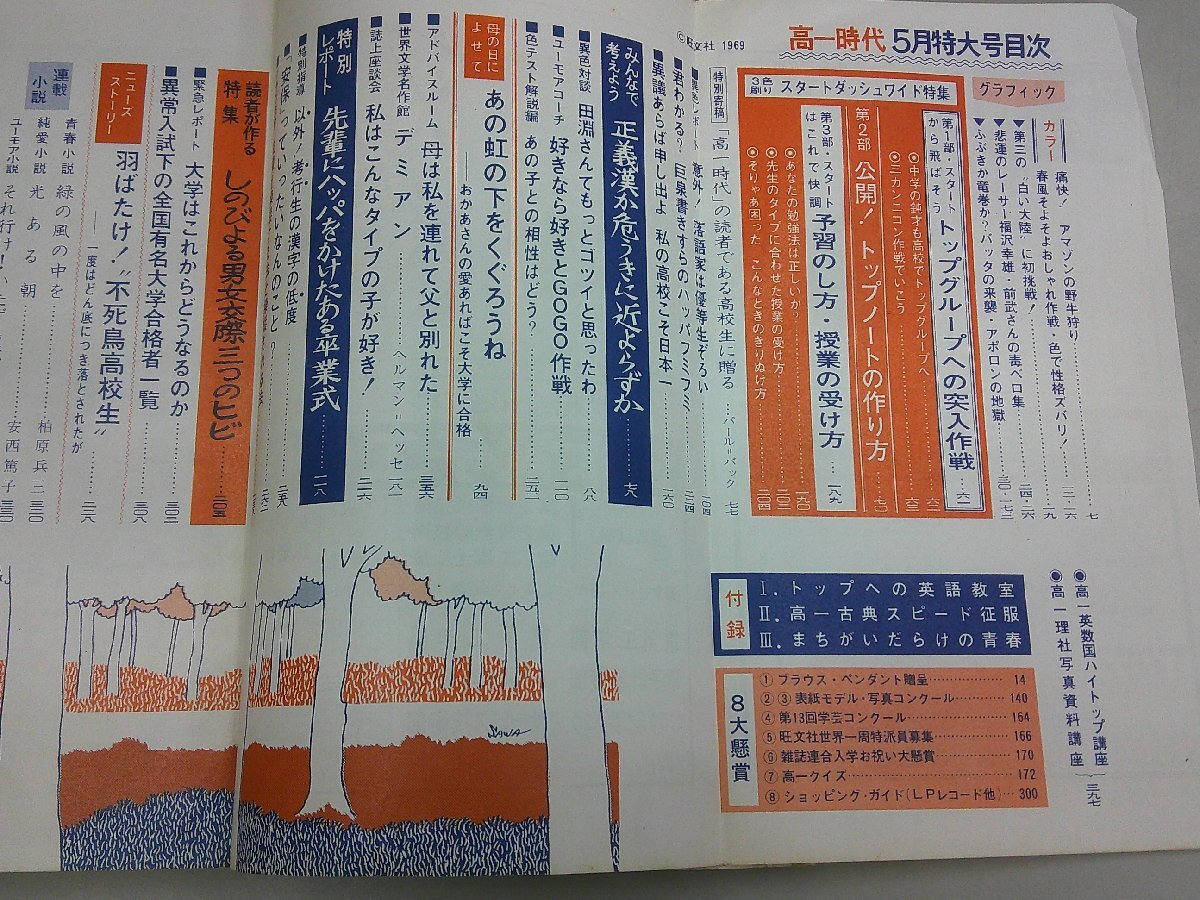 高一時代 5月特大号目次
©旺文社 1969
グラフィック
カラー
痛快! アマゾンの野牛狩り……七
春風そよそよおしゃれ作戦・色で性格ズバリ!
▼第三の“白い大陸”に初挑戦!……一九
▼悲運のレーサー福沢幸雄 前武さんの毒ベロ集
▼ふぶきか竜巻か?バッタの来襲 アポロンの地獄
3色刷り スタートダッシュワイド特集
第1部・スタートから飛ばそう トップグループへの突入作戦
●中学の鈍才も高校でトップグループへ
●三カン二コン作戦でいこう
第2部 公開! トップノートの作り方
第3部・スタートはこれで快調 予習のし方・授業の受け方 一八九
●あなたの勉強法は正しいか?……一九〇
●先生のタイプに合わせた授業の受け方
●そりゃあ困った こんなときのきりぬけ方……二〇四
特別寄稿 「高一時代」の読者である高校生に贈る……パール=バック 七七
意外! 落語家は優等生ぞろい……一〇四
君わかる? 巨泉書きすらのハッパフミフミ
異議あらば申し出よ 私の高校こそ日本一……一六〇
みんなで考えよう 正義漢か危うきに近よらずか……七八
■異色対談 田淵さんてもっとゴツイと思ったわ……八八
■ユーモアコーチ 好きなら好きとGOGO作戦
■色テスト解説編 あの子との相性はどう?
母の日によせて あの虹の下をくぐろうね
──おかあさんの愛あればこそ大学に合格……九四
■アドバイスルーム 母は私を連れて父と別れた
■世界文学名作館 デミアン……ヘルマン=ヘッセ 一八一
■誌上座談会 私はこんなタイプの子が好き!
特別レポート 先輩にハッパをかけたある卒業式……一一八
■特別指導 以外! 考行・生の漢字の低度
「安保」っていったいなんのこと?
読者が作る特集 しのびよる男女交際三つのヒビ
■緊急レポート 大学はこれからどうなるのか
■異常入試下の全国有名大学合格者一覧
ニューズストーリー 羽ばたけ!“不死鳥高校生”
──一度はどん底につき落とされたが
連載小説
青春小説 緑の風の中を……柏原兵三
純愛小説 光ある朝……安西篤子
ユーモア小説 それ行け!
●高一英数国ハイトップ講座
●高一理社写真資料講座
三九七
付録
I. トップへの英語教室
II. 高一古典スピード征服
III. まちがいだらけの青春
8大懸賞
① ブラウス・ペンダント贈呈……14
② ③ 表紙モデル・写真コンクール……140
④ 第13回学芸コンクール……164
⑤ 旺文社世界一周特派員募集……166
⑥ 雑誌連合入学お祝い大懸賞……170
⑦ 高一クイズ……172
⑧ ショッピング・ガイド(LPレコード他)…300